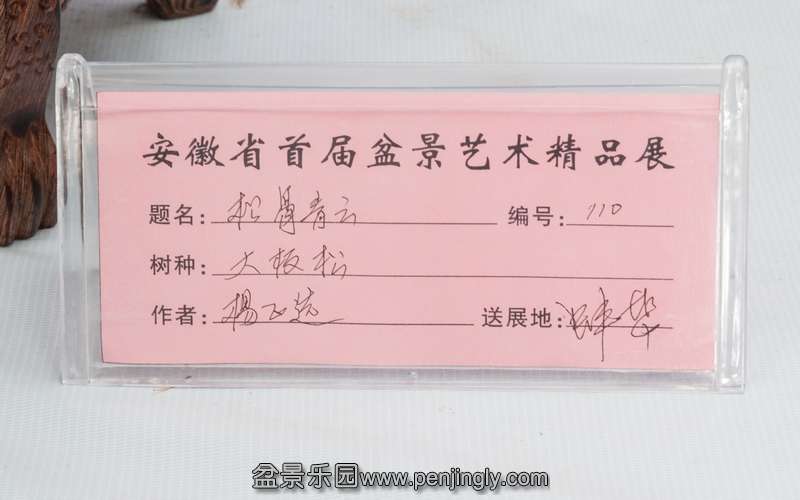 安徽省首届盆景艺术精品展
题名: 松骨青云 编号: 110
树种: 大板松
作者: 杨正 送展地:
盆景乐园www.penjingly.com